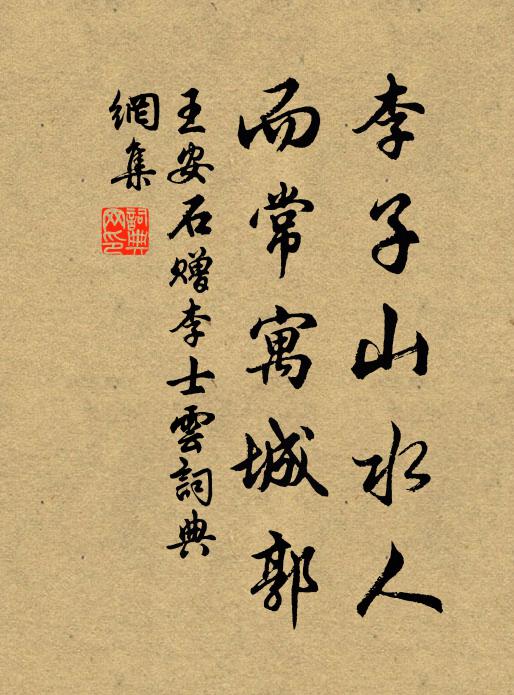 李子山水人
而常寓城郭
王安石贈李士雲詞典
網集
詞典
网印